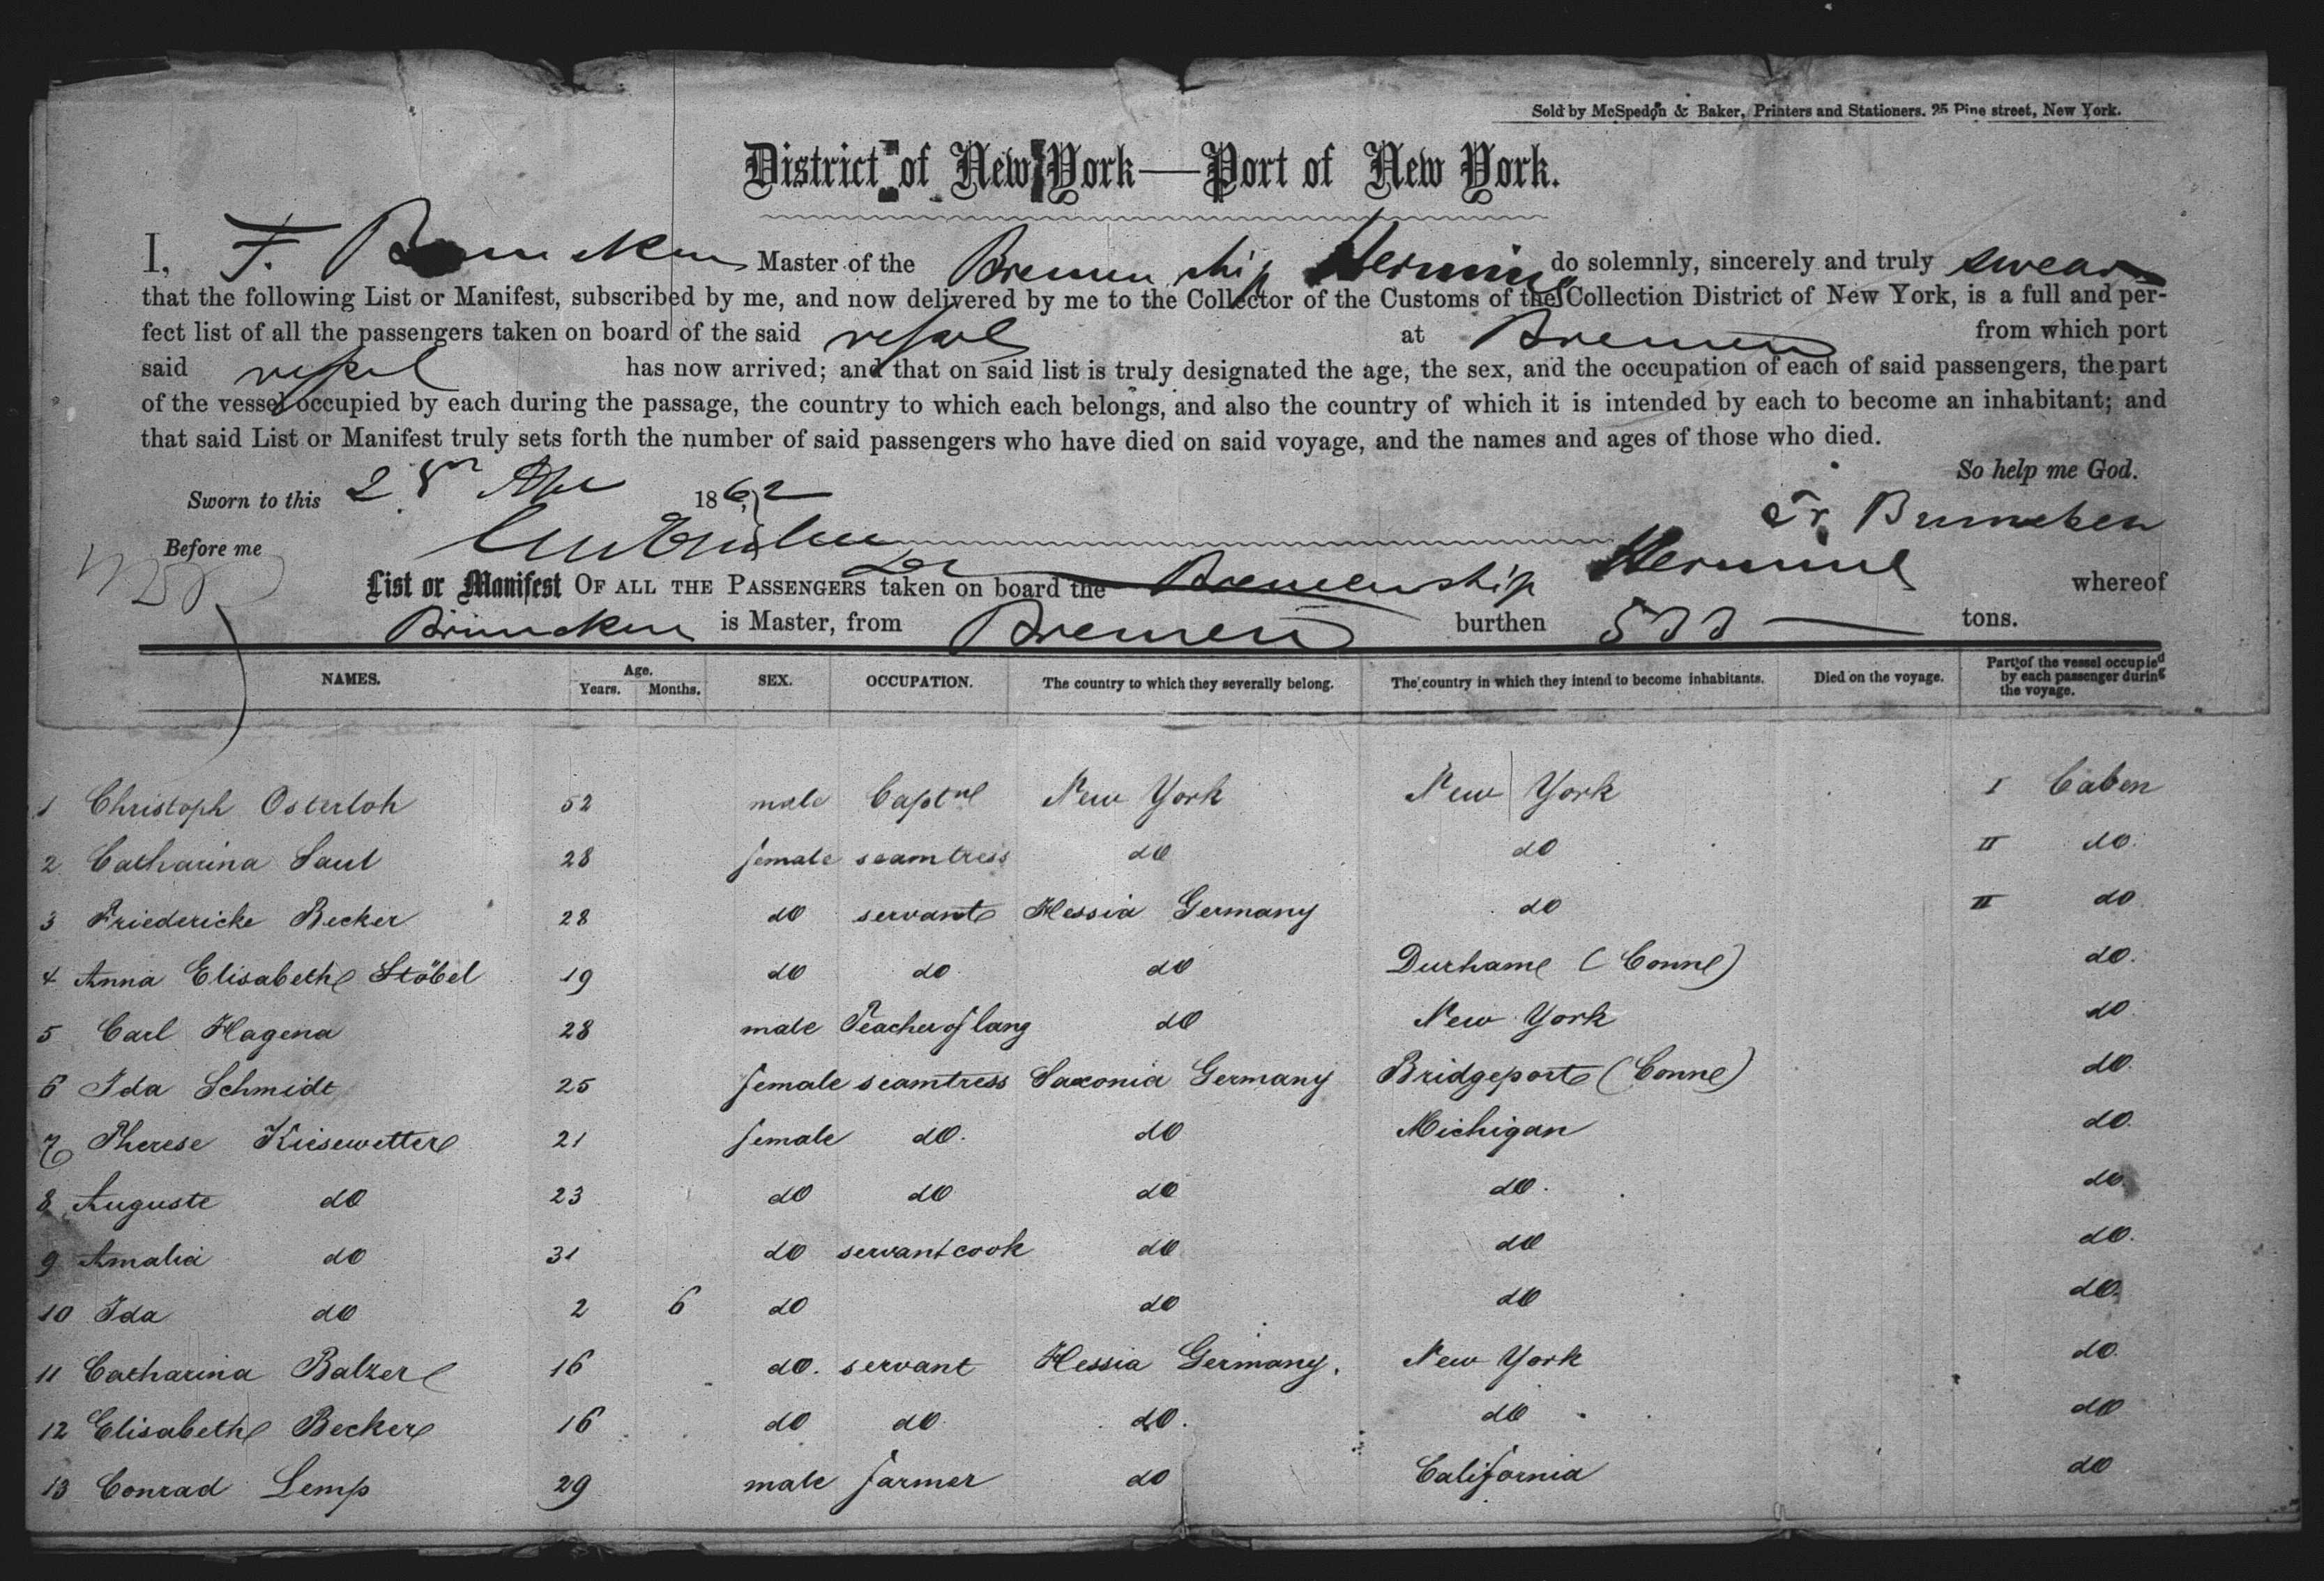 Sold by McSpedon & Baker, Printers and Stationers. 25 Pine street, New York.
District of New York—Port of New York.
I, F. Bruncken Master of the Bremen ship Hermine do solemnly, sincerely and truly swear
that the following List or Manifest, subscribed by me, and now delivered by me to the Collector of the Customs of the Collection District of New York, is a full and per-
fect list of all the passengers taken on board of the said vessel at Bremen from which port
said vessel has now arrived; and that on said list is truly designated the age, the sex, and the occupation of each of said passengers, the part
of the vessel occupied by each during the passage, the country to which each belongs, and also the country of which it is intended by each to become an inhabitant; and
that said List or Manifest truly sets forth the number of said passengers who have died on said voyage, and the names and ages of those who died.
So help me God.
Sworn to this 28 Apl 1862
Fr. Bruncken
Before me
List or Manifest OF ALL THE PASSENGERS taken on board the Bremen ship Hermine whereof
Bruncken is Master, from Bremen burthen 500 tons.
NAMES. Age. Years. Months. SEX. OCCUPATION. The country to which they severally belong. The country in which they intend to become inhabitants. Died on the voyage. Part of the vessel occupied by each passenger during the voyage.
1 Christoph Osterloh 52 male Captn New York New York I Caben
2 Catharina Saul 28 female seamtress do do II do.
3 Friedericke Becker 28 do servant Hessia Germany do II do
4 Anna Elisabeth Stöbel 19 do do do Durham (Conn) do.
5 Carl Hagena 28 male Teacher of lang do New York do.
6 Ida Schmidt 25 female seamtress Saxonia Germany Bridgeport (Conn) do.
7 Therese Kiesewetter 21 female do. do Michigan do.
8 Auguste do 23 do do do do. do.
9 Amalia do 31 do servant cook do do do.
10 Ida do 2 6 do do do do.
11 Catharina Balzer 16 do. servant Hessia Germany. New York do.
12 Elisabeth Becker 16 do do do. do do
13 Conrad Lemp 29 male farmer do California do